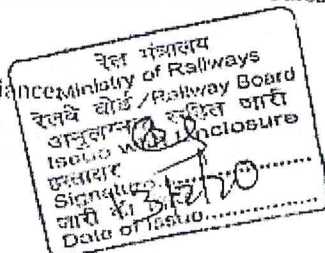 iance
रेल मंत्रालय
Ministry of Railways
रेलवे बोर्ड / Railway Board
सहित जारी
Issue with Enclosure
हस्ताक्षर
Signature..................
जारी
Date of Issue..................